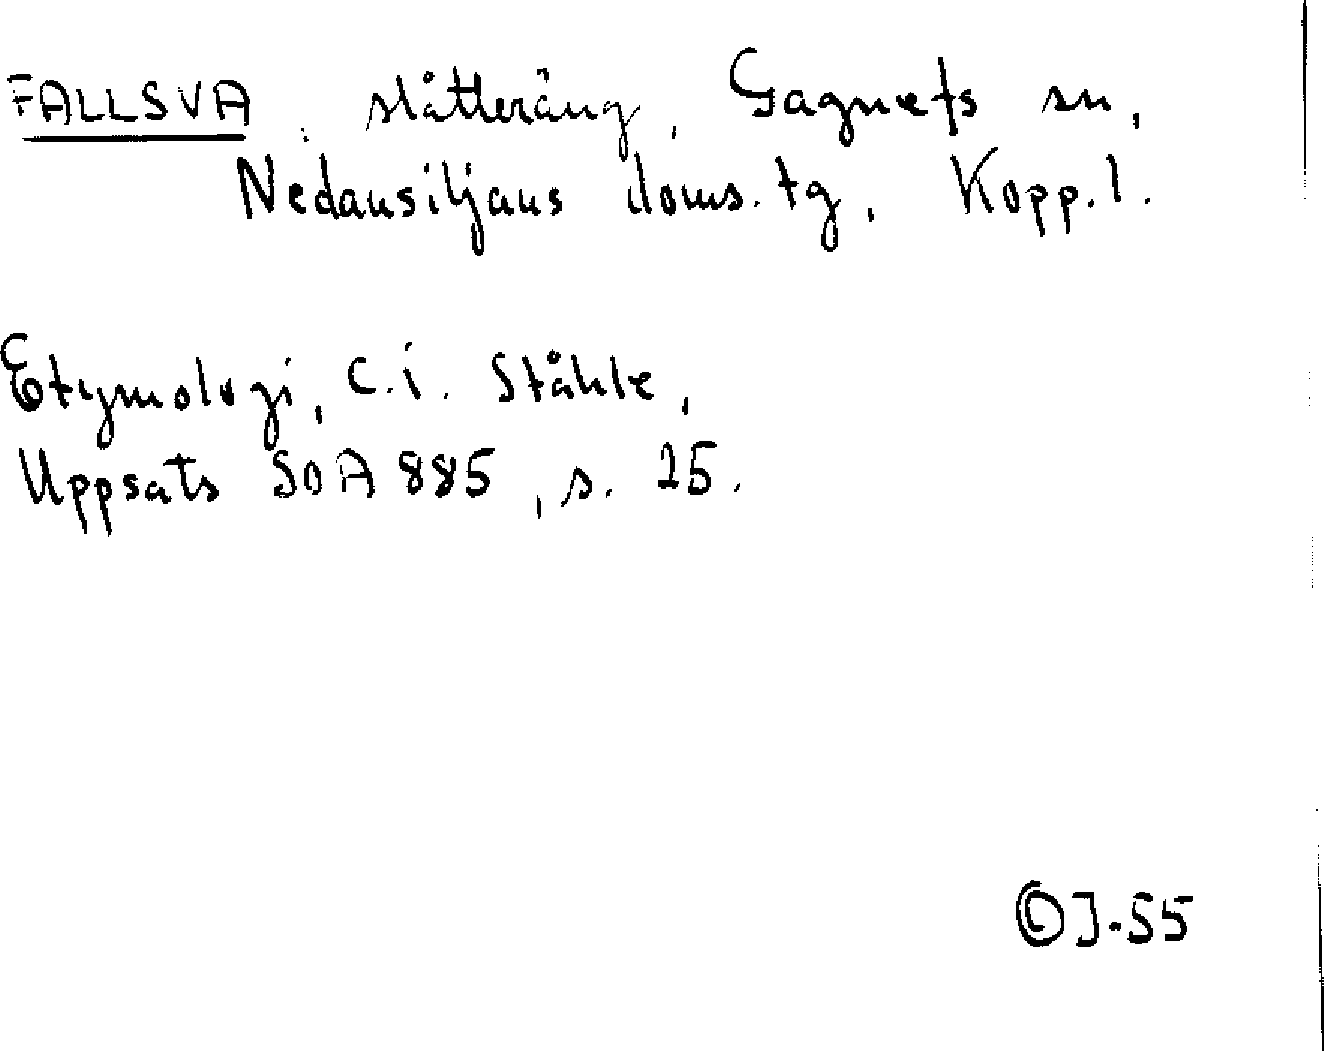 FALLSVA, slåtteräng, Gagnefs sn,
Nedansiljans doms.tg, Kopp.l.
Etymologi, C.I. Ståhle,
Uppsats SOA 885, s. 25.